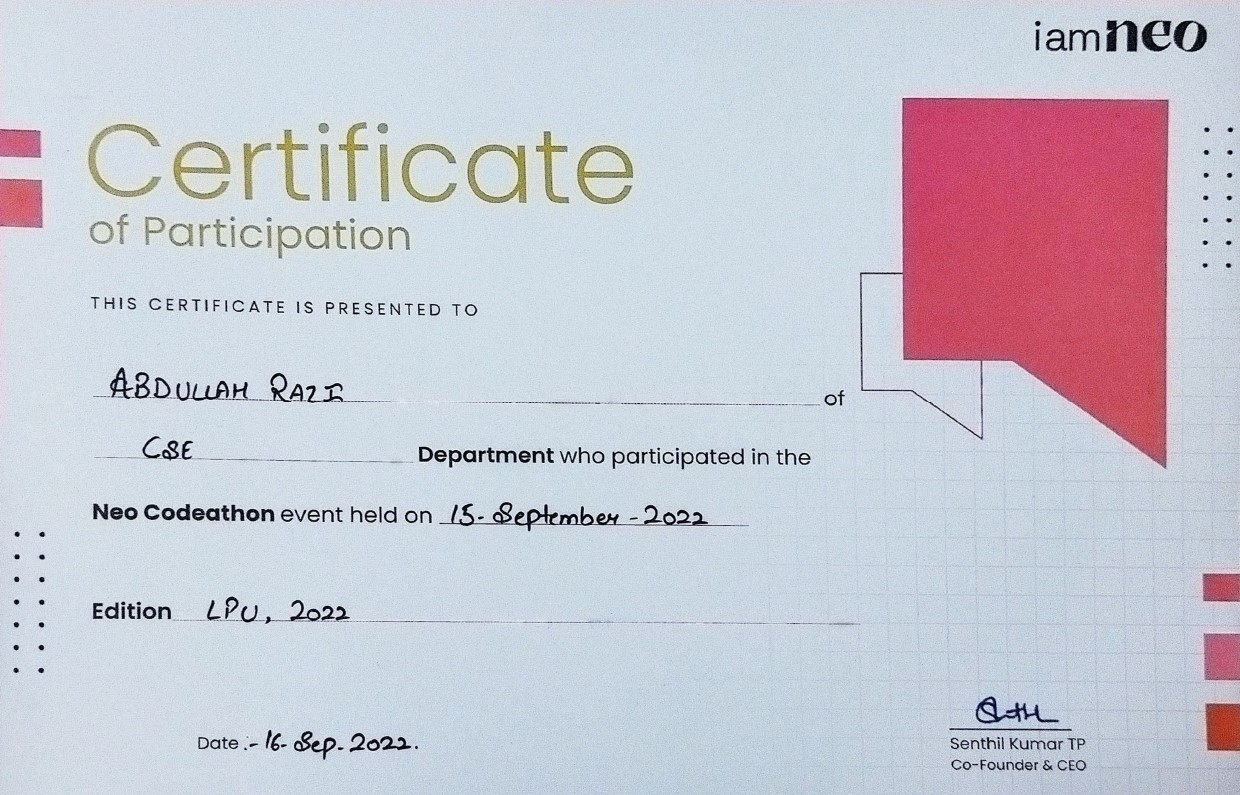 iamneo
Certificate
of Participation
THIS CERTIFICATE IS PRESENTED TO
ABDULLAH RAZI of
CSE Department who participated in the
Neo Codeathon event held on 15-September-2022
Edition LPU, 2022
Date:- 16-Sep-2022.
Senthil Kumar TP
Co-Founder & CEO